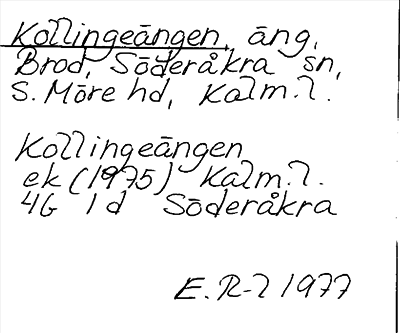 Kollingeängen, äng,
Brod, Söderåkra sn,
S. Möre hd, Kalm.l.
Kollingeängen
ek (1975) Kalm.l.
4G 1d Söderåkra
E. R-l 1977